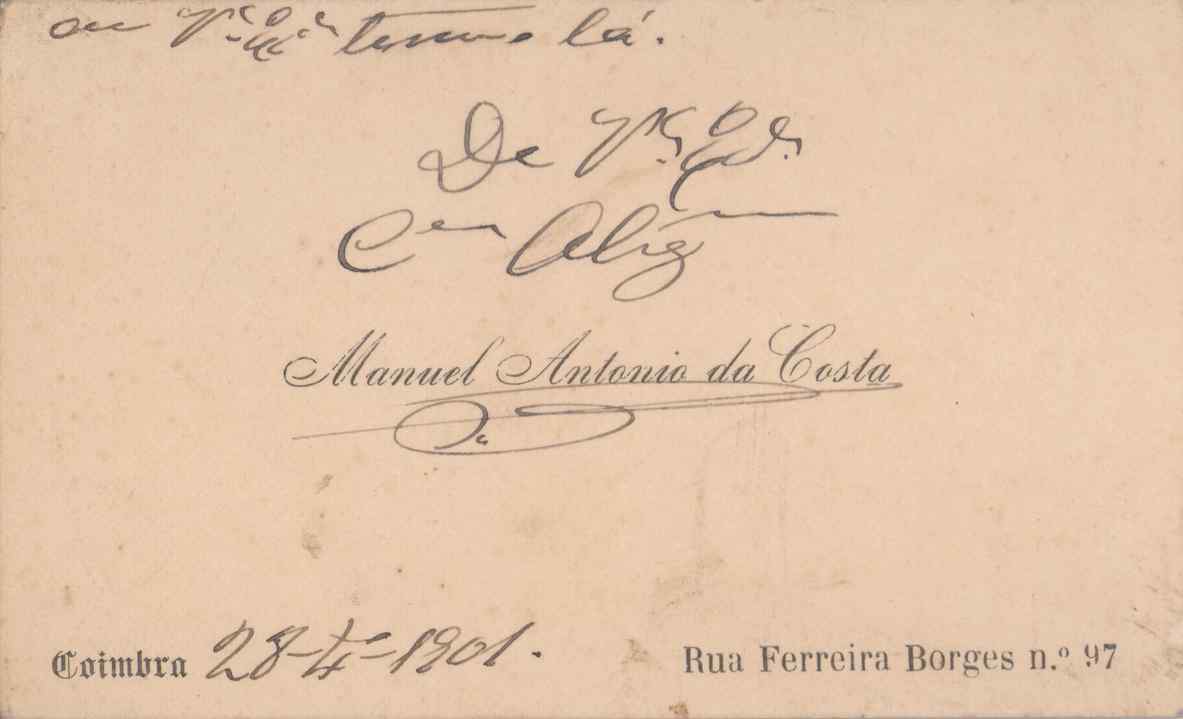 V.ª Ex.ª tenem lá.
De V.ª Ex.ª
C.en Obrig
Manuel Antonio da Costa
Coimbra 28-4-1901.
Rua Ferreira Borges n.º 97